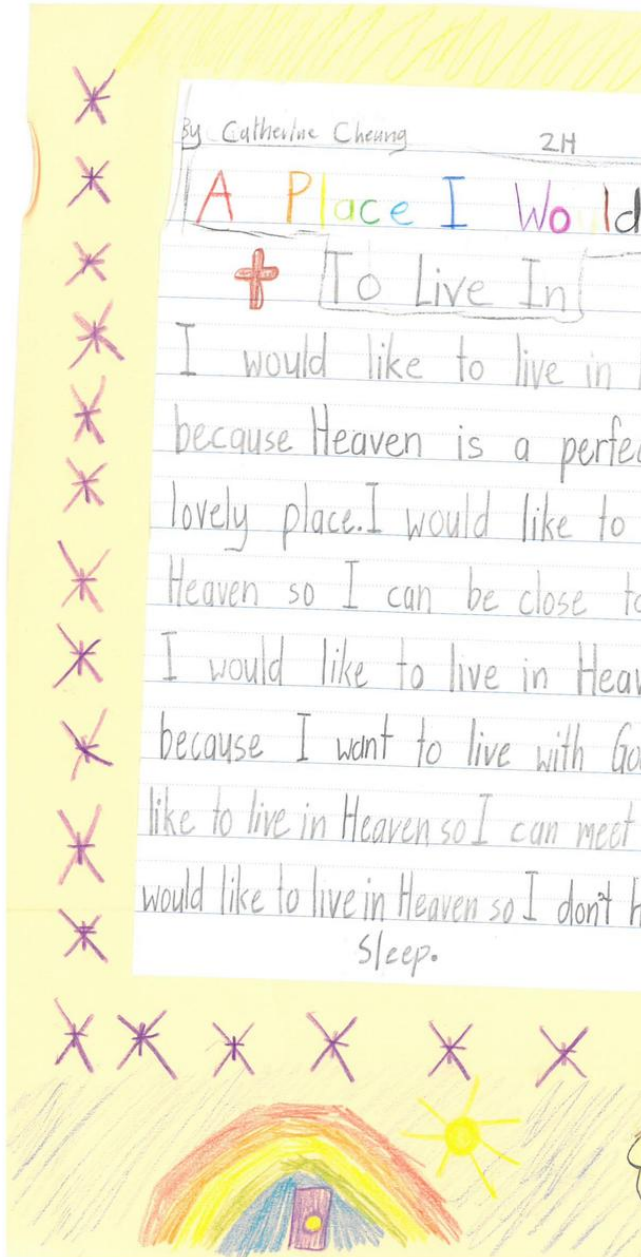 By Catherine Cheung 2H
A Place I Would
To Live In
I would like to live in
because Heaven is a perfec
lovely place. I would like to
Heaven so I can be close to
I would like to live in Heav
because I want to live with Go
like to live in Heaven so I can meet
would like to live in Heaven so I don't h
sleep.